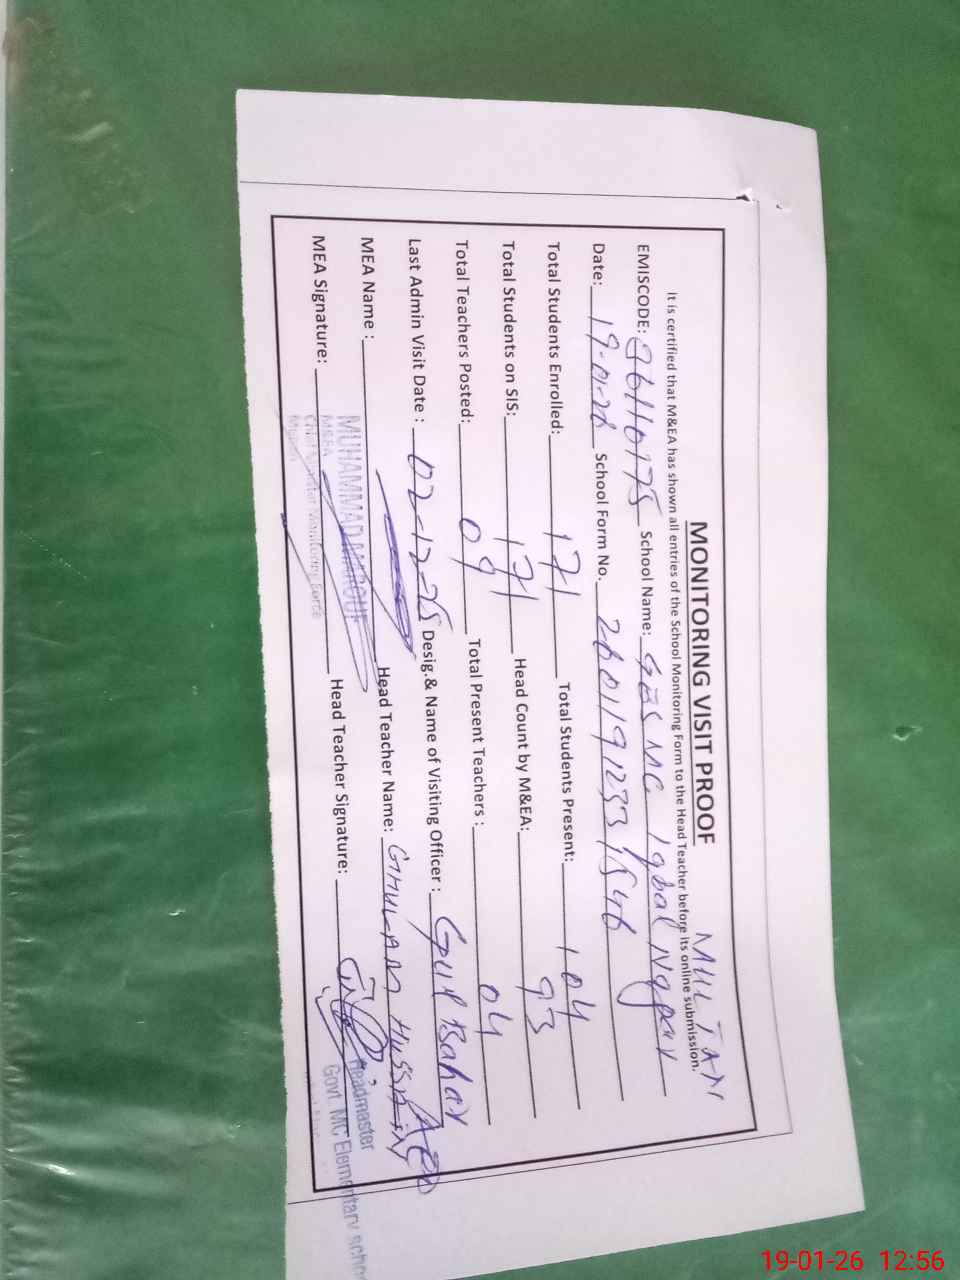 MONITORING VISIT PROOF
It is certified that M&EA has shown all entries of the School Monitoring Form to the Head Teacher before its online submission.
EMISCODE: 36110175 School Name: GES MC Iqbal Nagar
Date: 19-01-26 School Form No. 2601191233
Total Students Enrolled: 171 Total Students Present: 104
Total Students on SIS: 171 Head Count by M&EA: 93
Total Teachers Posted: 04 Total Present Teachers : 04
Last Admin Visit Date : 02-12-25 Desig.& Name of Visiting Officer : Gul Bahar AEO
MEA Name : Head Teacher Name: GHULAM HUSSAIN
MEA Signature: Head Teacher Signature:
MUHAMMAD MAROUF
M&EA
Chief Minister Monitoring Force
Headmaster
Govt. MC Elementary
19-01-26 12:56